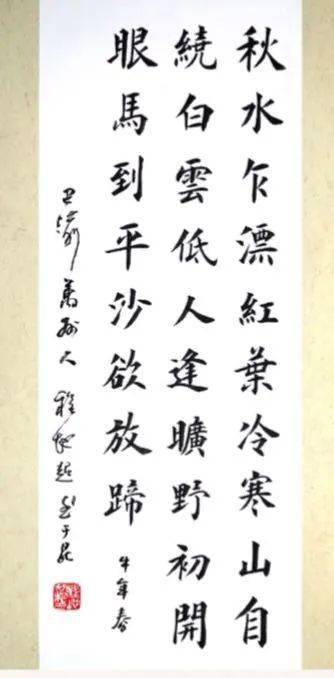 秋水乍漂紅葉冷寒山自
繞白雲低人逢曠野初開
眼馬到平沙欲放蹄 牛年春
巴渝萬州人 程超